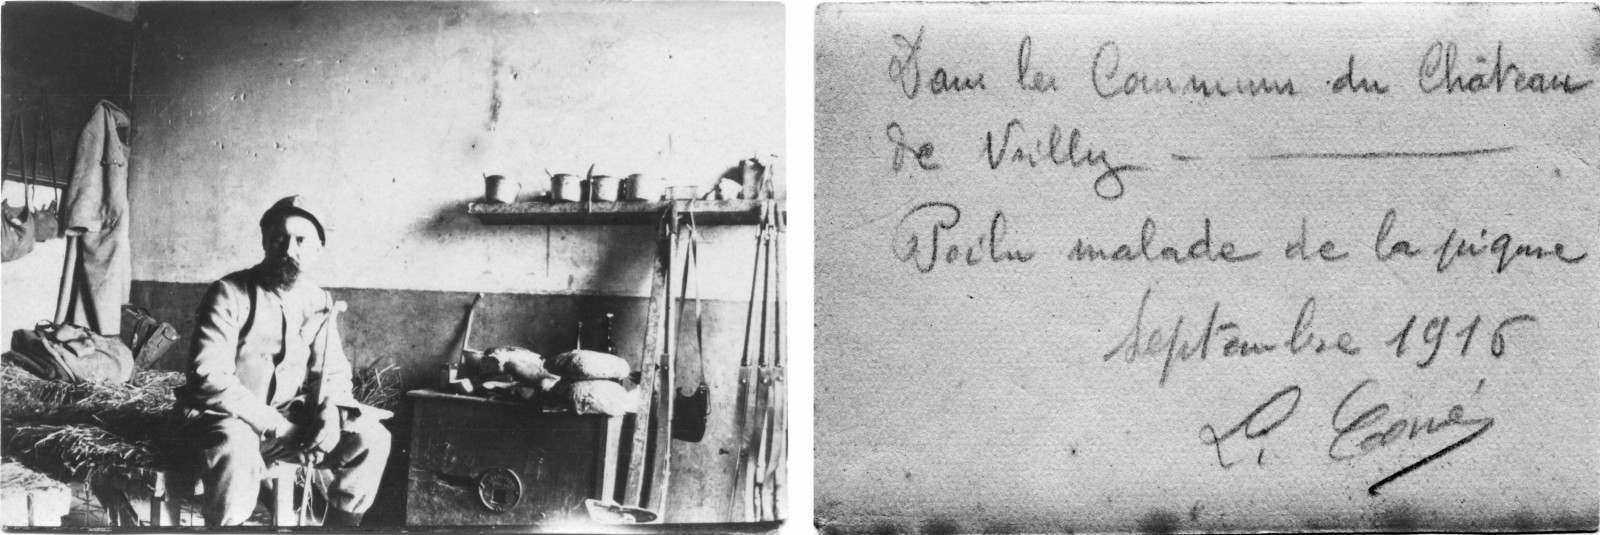 Dans les Communs du Château
de Vrilly - ———
Poilu malade de la piqure
Septembre 1916
L.